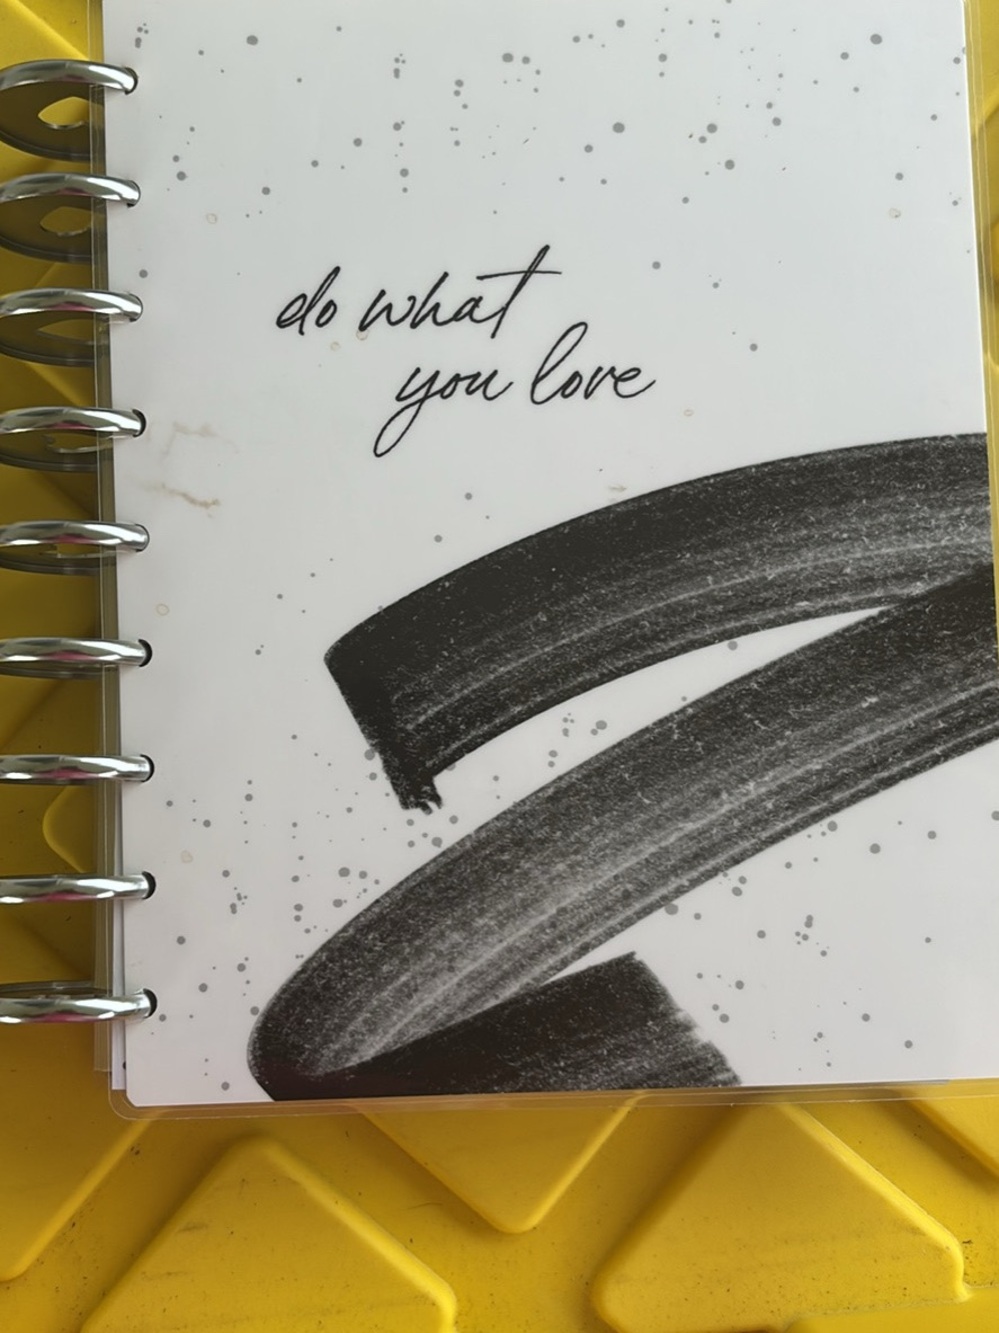 do what
you love